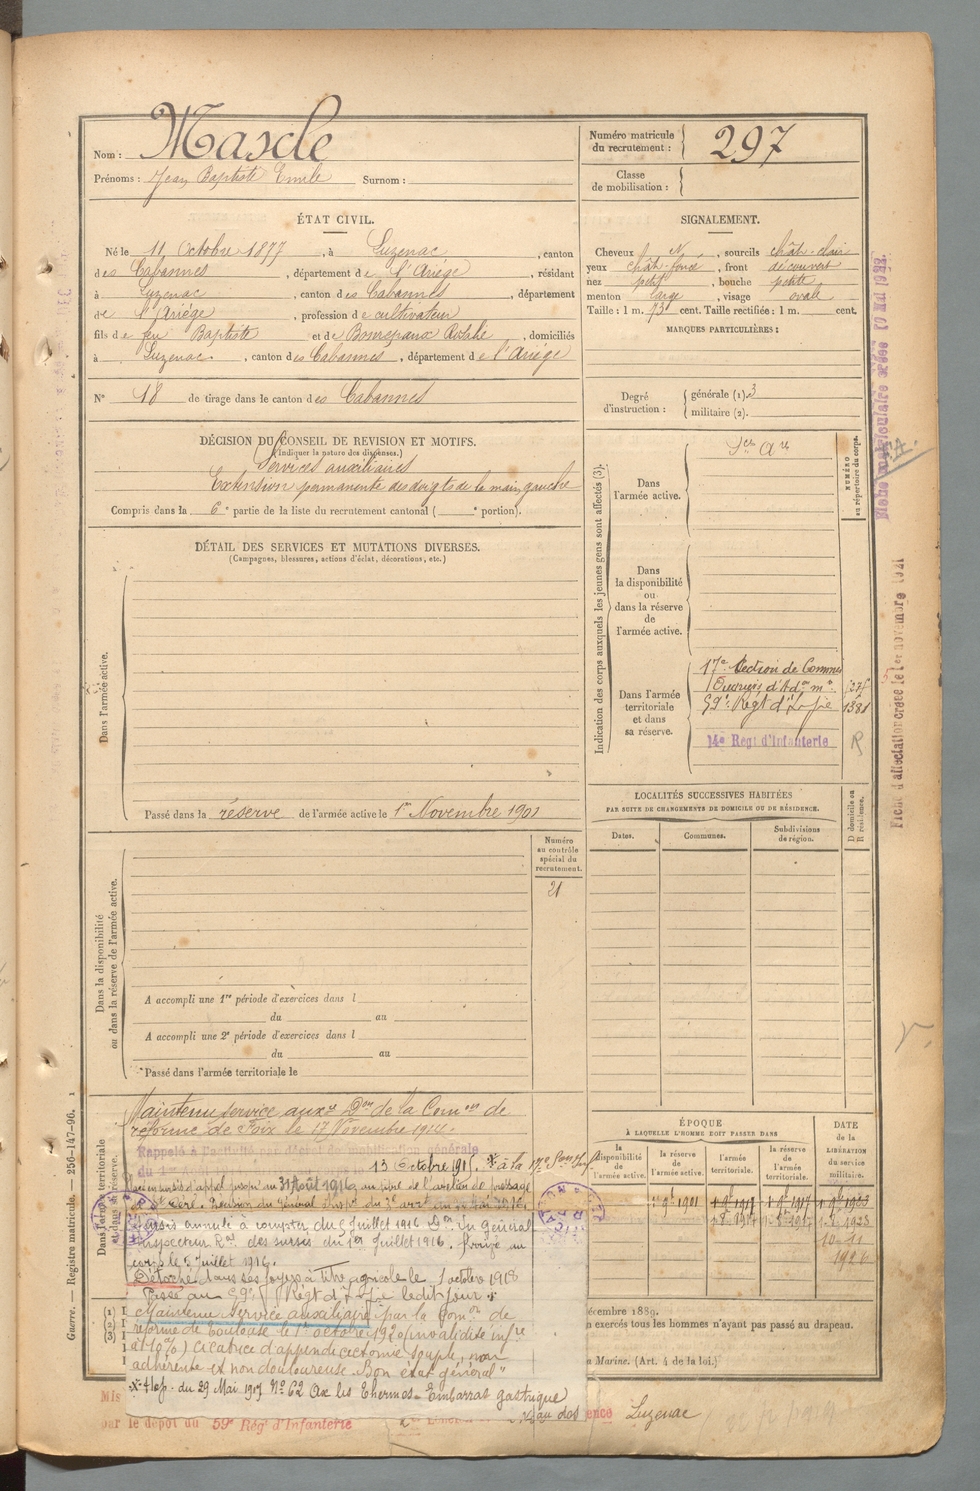 Nom : Mascle
Prénoms : Jean Baptiste Emile Surnom :
Numéro matricule du recrutement : 297
Classe de mobilisation :
ÉTAT CIVIL.
Né le 11 Octobre 1877, à Luzenac, canton
des Cabannes, département de l'Ariège, résidant
à Luzenac, canton des Cabannes, département
de l'Ariège, profession de cultivateur
fils de feu Baptiste et de Bonrepaux Rosalie, domiciliés
à Luzenac, canton des Cabannes, département de l'Ariège
N° 18 de tirage dans le canton des Cabannes
SIGNALEMENT.
Cheveux N, sourcils chât-clair
yeux chât-foncé, front découvert
nez petit, bouche petite
menton large, visage ovale
Taille : 1 m. 73 cent. Taille rectifiée : 1 m. cent.
MARQUES PARTICULIÈRES :
Degré d'instruction : générale (1). 3
militaire (2).
DÉCISION DU CONSEIL DE REVISION ET MOTIFS.
(Indiquer la nature des dispenses.)
Services auxiliaires
Extension permanente des doigts de la main gauche
Compris dans la 6e partie de la liste du recrutement cantonal ( e portion).
DÉTAIL DES SERVICES ET MUTATIONS DIVERSES.
(Campagnes, blessures, actions d'éclat, décorations, etc.)
Dans l'armée active.
Passé dans la réserve de l'armée active le 1er Novembre 1901
Indication des corps auxquels les jeunes gens sont affectés (3).
NUMÉRO au répertoire du corps.
Dans l'armée active.
Dans la disponibilité ou dans la réserve de l'armée active.
Dans l'armée territoriale et dans sa réserve.
17e Section de Commis
Ouvriers d'Adon mre
59e Régt d'Infie 1381
14e Régt d'Infanterie R
LOCALITÉS SUCCESSIVES HABITÉES
PAR SUITE DE CHANGEMENTS DE DOMICILE OU DE RÉSIDENCE.
Dates. Communes. Subdivisions de région. D domicile ou R résidence.
Dans la disponibilité ou dans la réserve de l'armée active.
Numéro au contrôle spécial du recrutement.
21
A accompli une 1re période d'exercices dans l
du au
A accompli une 2e période d'exercices dans l
du au
Passé dans l'armée territoriale le
Dans l'armée territoriale
Maintenu service auxre Don de la Comon de
réforme de Foix le 17 Novembre 1914.
Rappelé à l'activité
13 Octobre 1915. à la 17e Son
jusqu'au 31 Août 1916
Sursis annulé à compter du 5 Juillet 1916 Don du Général
Inspecteur Ral des sursis du 1er Juillet 1916. Arrivé au
corps le 5 Juillet 1916.
Détaché dans ses foyers à titre agricole le 1 octobre 1918
Passé au 59e Régt d'Infie ledit jour
Maintenu service auxiliaire par la Comon de
réforme de Toulouse le 1er octobre 1920 invalidité infre
à 10%) Cicatrice d'appendicectomie souple, non
adhérente et non douloureuse. Bon état général"
du 29 Mai 1917 No 62 Ax les Thermes - Embarras gastrique
au dos
ÉPOQUE
À LAQUELLE L'HOMME DOIT PASSER DANS
la disponibilité de l'armée active. la réserve de l'armée active. l'armée territoriale. la réserve de l'armée territoriale.
DATE de la LIBÉRATION du service militaire.
1 9bre 1901
1926
décembre 1889.
n exercés tous les hommes n'ayant pas passé au drapeau.
a Marine. (Art. 4 de la loi.)
Mis
par le dépôt du 59e Rég d'Infanterie
ence Luzenac
Guerre. — Registre matricule. — 256-147-96. 1
Fiche matriculaire créée 10 Mai 1922.
Fiche d'affectation créée le 1er novembre 1921